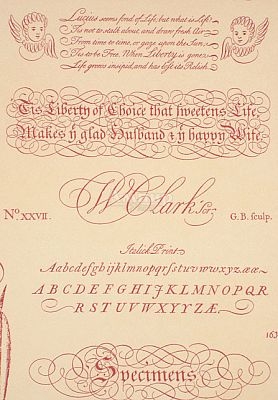 Lucius seems fond of Life, but what is Life?
'Tis not to stalk about, and draw fresh Air
From time to time, or gaze upon the Sun;
'Tis to be Free. When Liberty is gone,
Life grows insipid, and has lost its Relish.
Tis Liberty of Choice that sweetens Life,
Makes ye glad Husband & ye happy Wife.
W Clark Scr.
No. XXVII.
G. B. sculp.
Italick Print.
Aabcdefghijklmnopqrstuvwxyz.ææ.
ABCDEFGHIJKLMNOPQR
RSTUVWXYZÆ.
163
Specimens